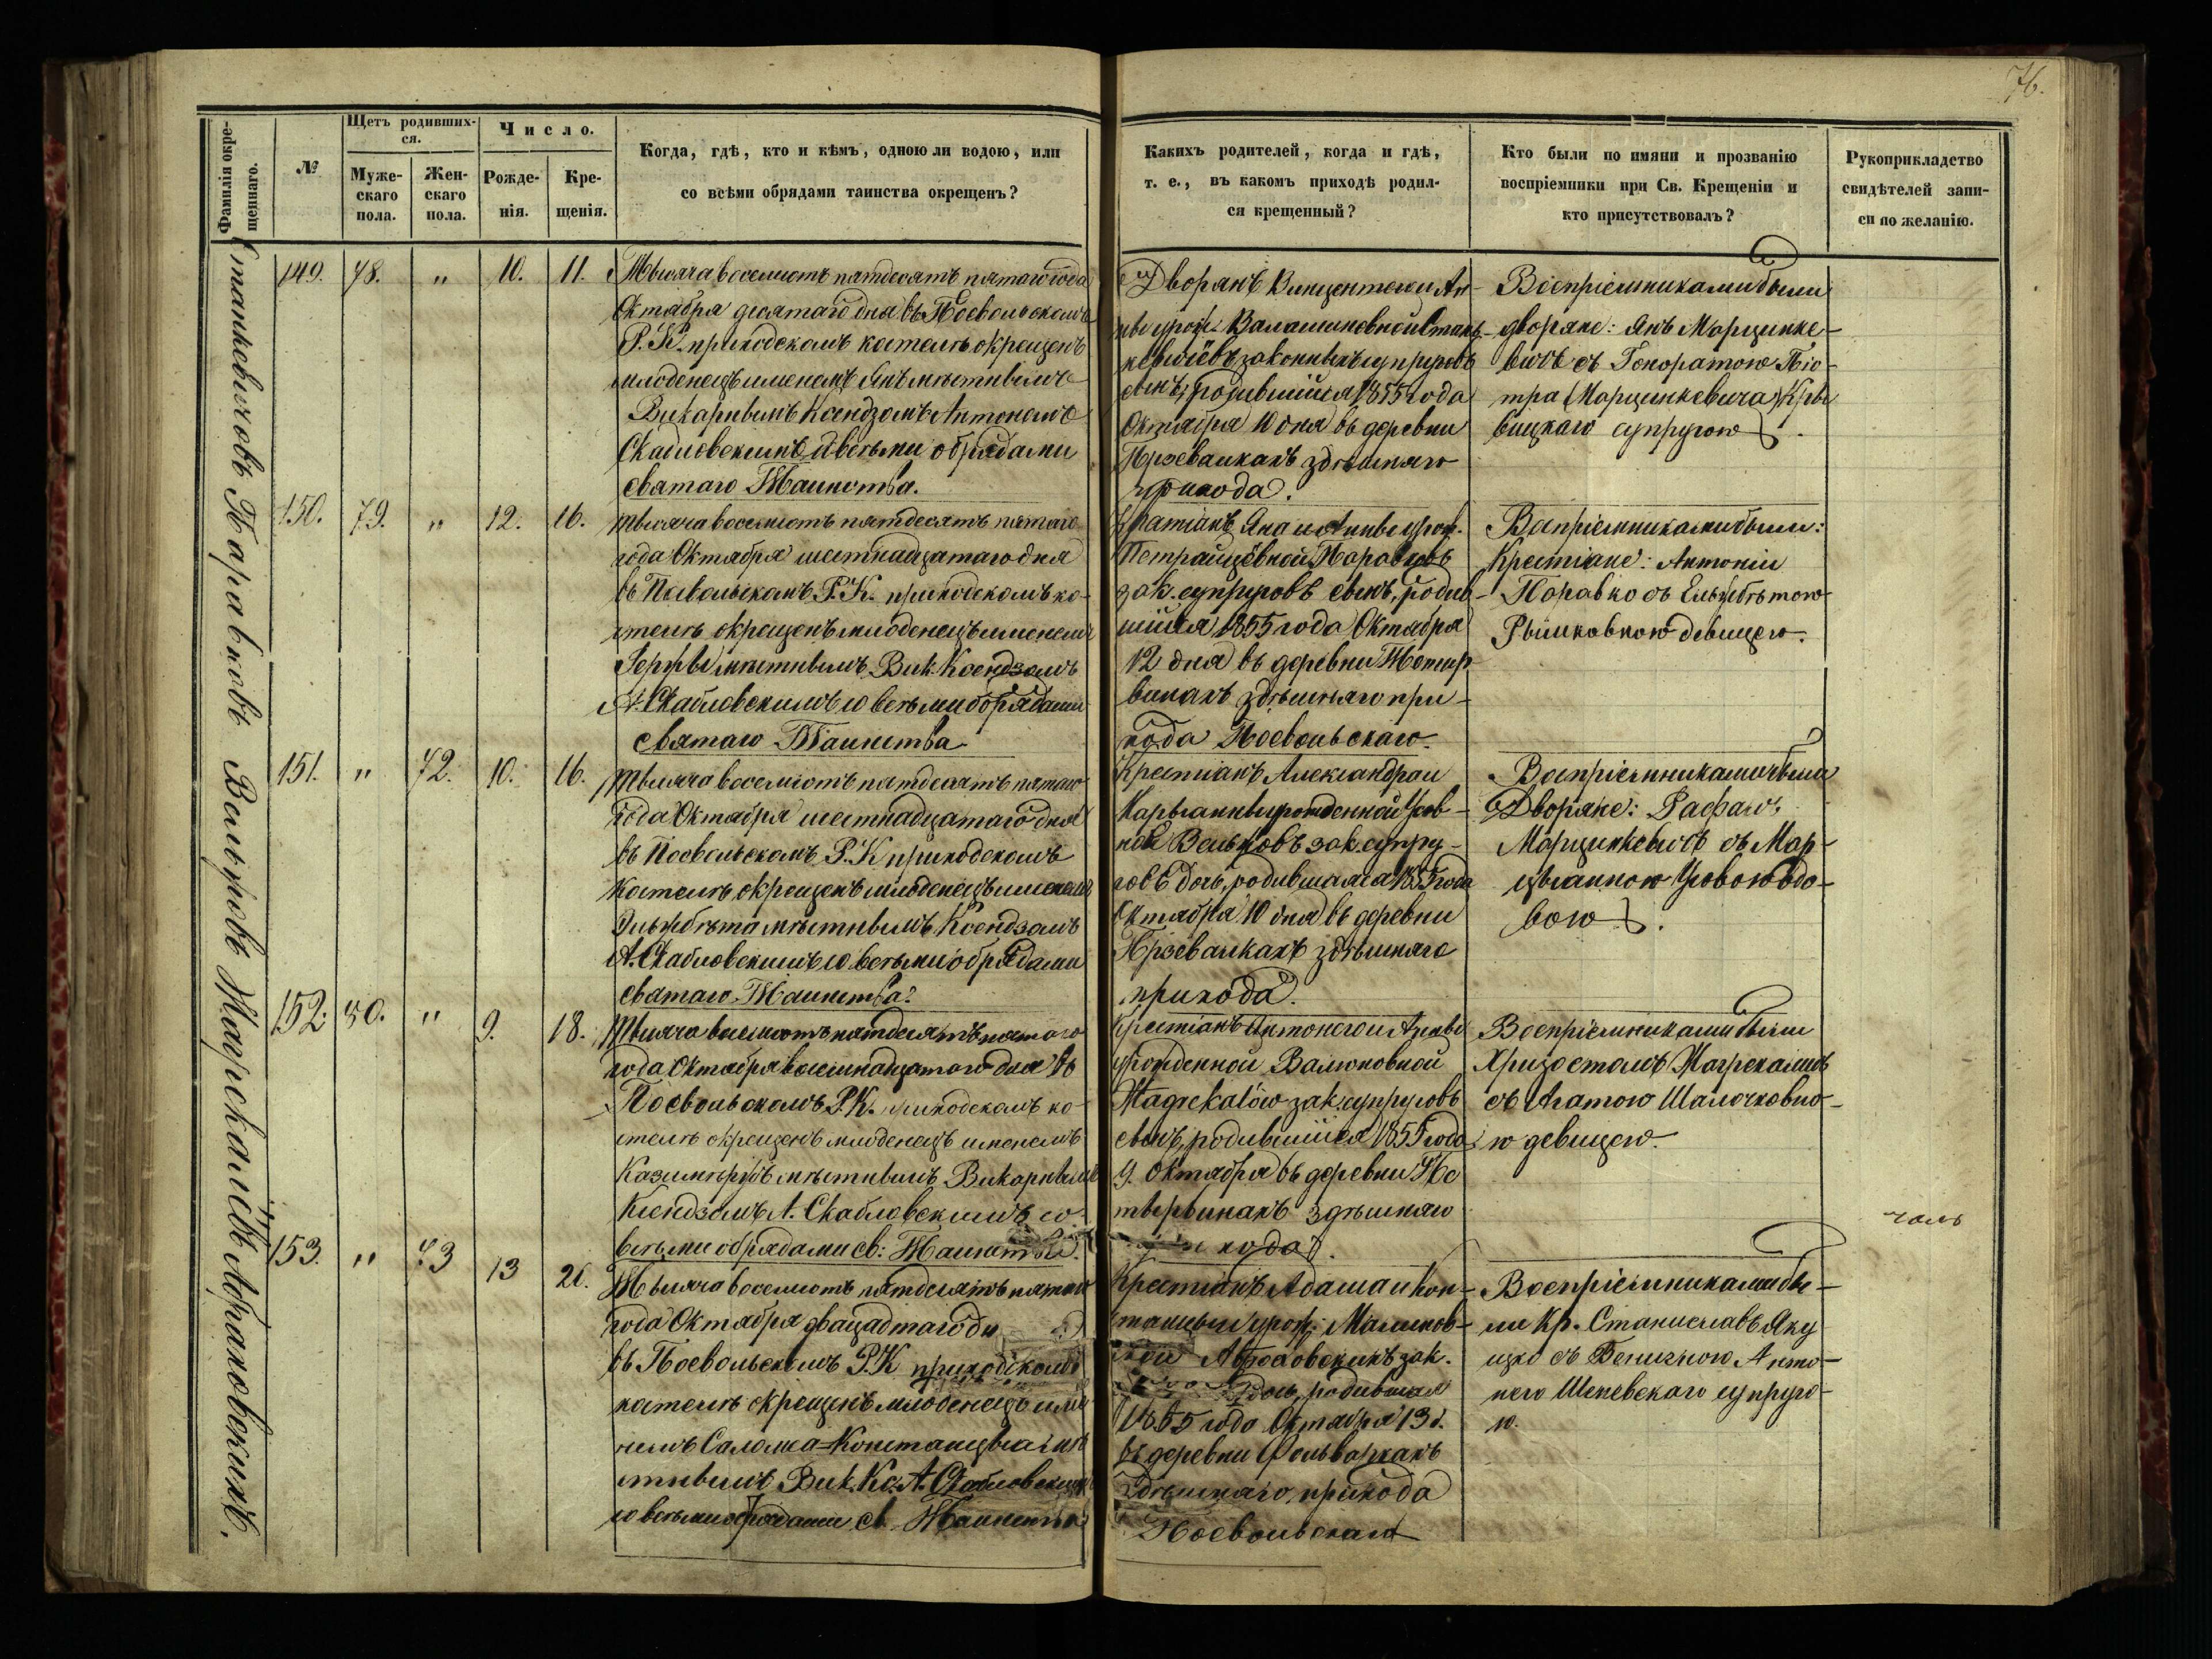 76.
Фамилія окре-
щеннаго.
№
Щетъ родивших-
ся.
Муже-
скаго
пола.
Жен-
скаго
пола.
Число.
Рожде-
нія.
Кре-
щенія.
Когда, гдѣ, кто и кѣмъ, одною ли водою, или
со всѣми обрядами таинства окрещенъ?
Каких родителей, когда и гдѣ,
т. е., въ какомъ приходѣ родил-
ся крещенный?
Кто были по имяни и прозванію
воспріемники при Св. Крещеніи и
кто присутствовалъ?
Рукоприкладство
свидѣтелей запи-
си по желанію.
Станкевичовъ
149. 78. " 10. 11.
Тысяча восемсотъ пятдесятъ пятаго года
Октября десятаго дня въ Посвольскомъ
Р. К. приходскомъ костелѣ окрещенъ
младенецъ именемъ Янъ мѣстнымъ
Викарнымъ Ксендзомъ Антонемъ
Скабловскимъ со всѣми обрядами
святаго Таинства.
Дворянъ Винцентеги и Ан-
ны урож. Валашиновной Станъ-
кевичёвъ законныхъ супруговъ
сынъ, родившійся 1855 года
Октября 10 дня въ деревни
Прзевалкахъ здѣшняго
прихода.
Воспріемниками были
дворяне: Янъ Марцинке-
вичъ съ Гоноратою Піо-
тра (Марцинкевича) Кры
вицкаго супругою.
Паравковъ
150. 79. " 12. 16.
Тысяча восемсотъ пятдесятъ пятаго
года Октября шестнадцатаго дня
въ Посвольскомъ Р. К. приходскомъ ко-
стелѣ окрещенъ младенецъ именемъ
Іержы мѣстнымъ Вик. Ксендзомъ
А. Скабловскимъ со всѣми обрядами
святаго Таинства
Крестіанъ Яна и Анны урож.
Петрайцёвной Паравковъ
зак. супруговъ сынъ, родив-
шійся 1855 года Октября
12 дня въ деревни
здѣшняго при-
хода Посвольскаго.
Воспріемниками были:
Крестіане: Антоній
Паравко съ Ельжбѣтою
Рышковною девицею.
Вальковъ
151. " 72. 10. 16.
Тысяча восемсотъ пятдесятъ пятаго
года Октября шестнадцатаго дня
въ Посвольскомъ Р. К. приходскомъ
костелѣ окрещенъ младенецъ именемъ
Эльжбѣта мѣстнымъ Ксендзомъ
А. Скабловскимъ со всѣми обрядами
святаго Таинства.
Крестіанъ Александра и
Марыанны урожденной
Вальковъ зак. супру-
говъ дочь, родившаяся 1855 года
Октября 10 дня въ деревни
Прзевалкахъ здѣшняго
прихода.
Воспріемниками были
Дворяне: Рафалъ
Марцинкевичъ съ Мар-
цыанною вдо-
вою.
Жагрскалёвъ
152. 80. " 9. 18.
Тысяча восемсотъ пятдесятъ пятаго
года Октября восемнадцатаго дня въ
Посвольскомъ Р. К. приходскомъ ко-
стелѣ окрещенъ младенецъ именемъ
Казимѣржъ мѣстнымъ Викарнымъ
Ксендзомъ А. Скабловскимъ со
всѣми обрядами св: Таинства.
Крестіанъ Антонеги и Анны
урожденной Валюковной
зак. супруговъ
сынъ, родившійся 1855 года
9. Октября въ деревни
здѣшняго
прихода.
Воспріемниками были
Хризостомъ Жагрскалъ
съ Агатою Шалочковно-
ю девицею.
чоль
Абраховскихъ.
153. " 73 13 20.
Тысяча восемсотъ пятдесятъ пятаго
года Октября двацадтаго дн
въ Посвольскомъ Р. К приходскомъ
костелѣ окрещенъ младенецъ име-
немъ Саломеа=Констанцыа мѣ
стнымъ Вик. Кс. А. Скабловским
со всѣми обрядами св. Таинства
Крестіанъ Адама и Кон-
станцыи урож. Малинов-
ной зак.
дочь, родившая
1855 года Октября 13 д.
въ деревни Фольваркахъ
здѣшняго прихода
Посвольскаго
Воспріемниками бы-
ли Кр. Станиславъ Яку
цко съ Бенигною Анто-
него Шепевскаго супруго-
ю.